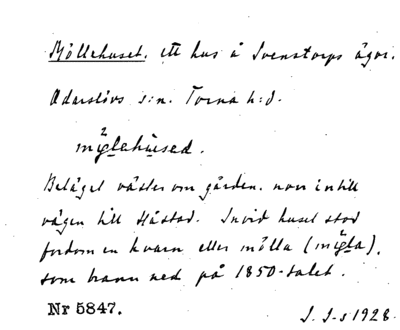 Möllehuset. ett hus å Svenstorps ägor.
Odarslövs s:n. Torna h:d.
Beläget väster om gården. norr intill
vägen till Hästad. Invid huset stod
fordom en kvarn eller mölla
som brann ned på 1850-talet.
Nr 5847.
1928.